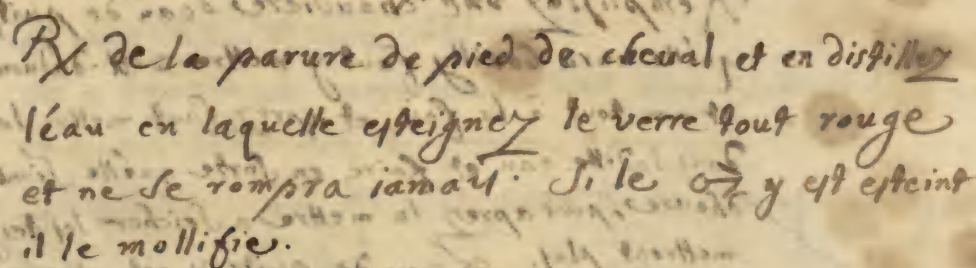 ℞ de la parure de pied de cheual, et en distillez
léau en laquelle esteignez le verre tout rouge
et ne se rompra iamais. Si le ♂ y est esteint
il le mollifie.